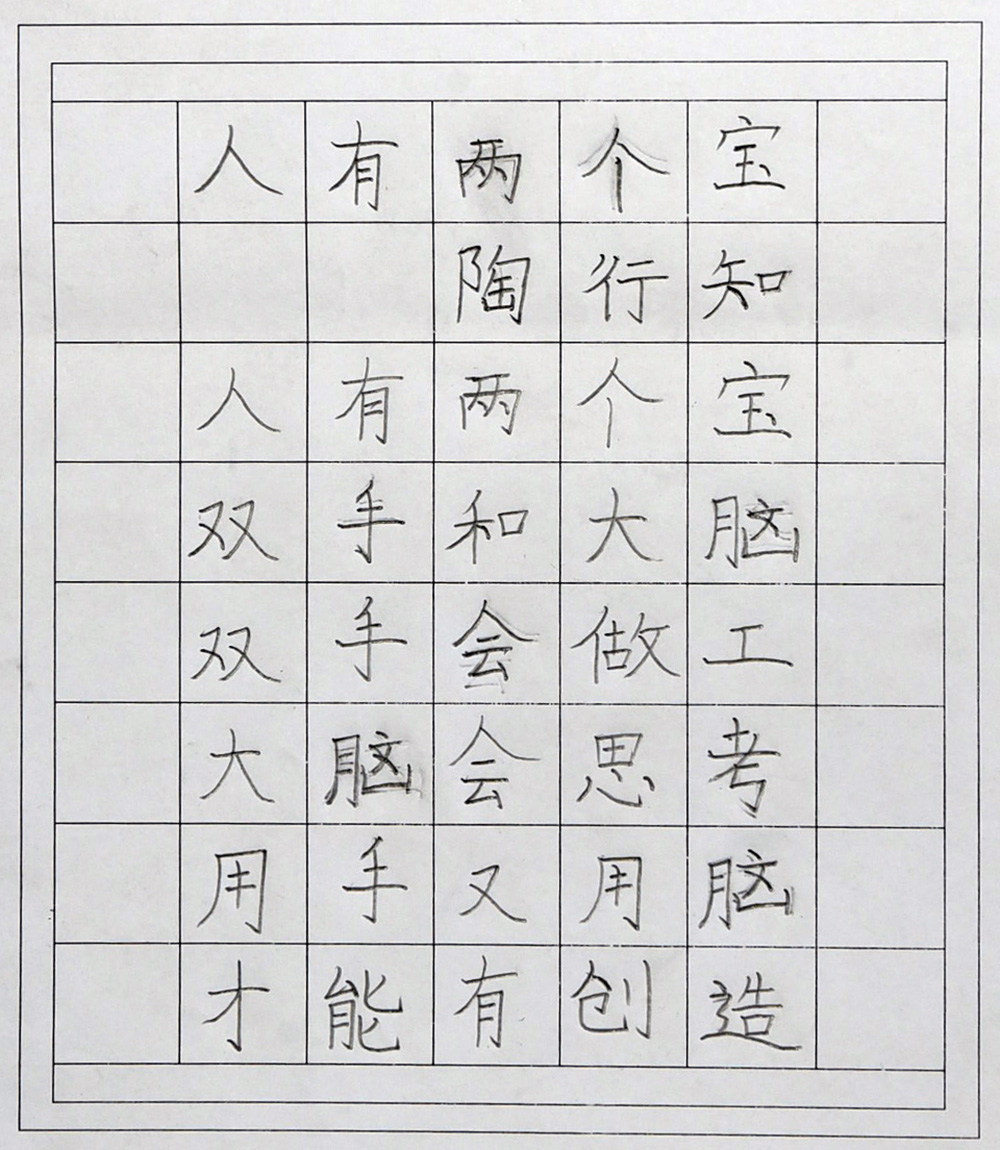 人有两个宝
陶行知
人有两个宝
双手和大脑
双手会做工
大脑会思考
用手又用脑
才能有创造